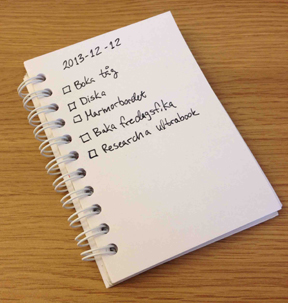 2013-12-12
Boka tåg
Diska
Marmorbordet
Baka fredagsfika
Researcha ultrabook